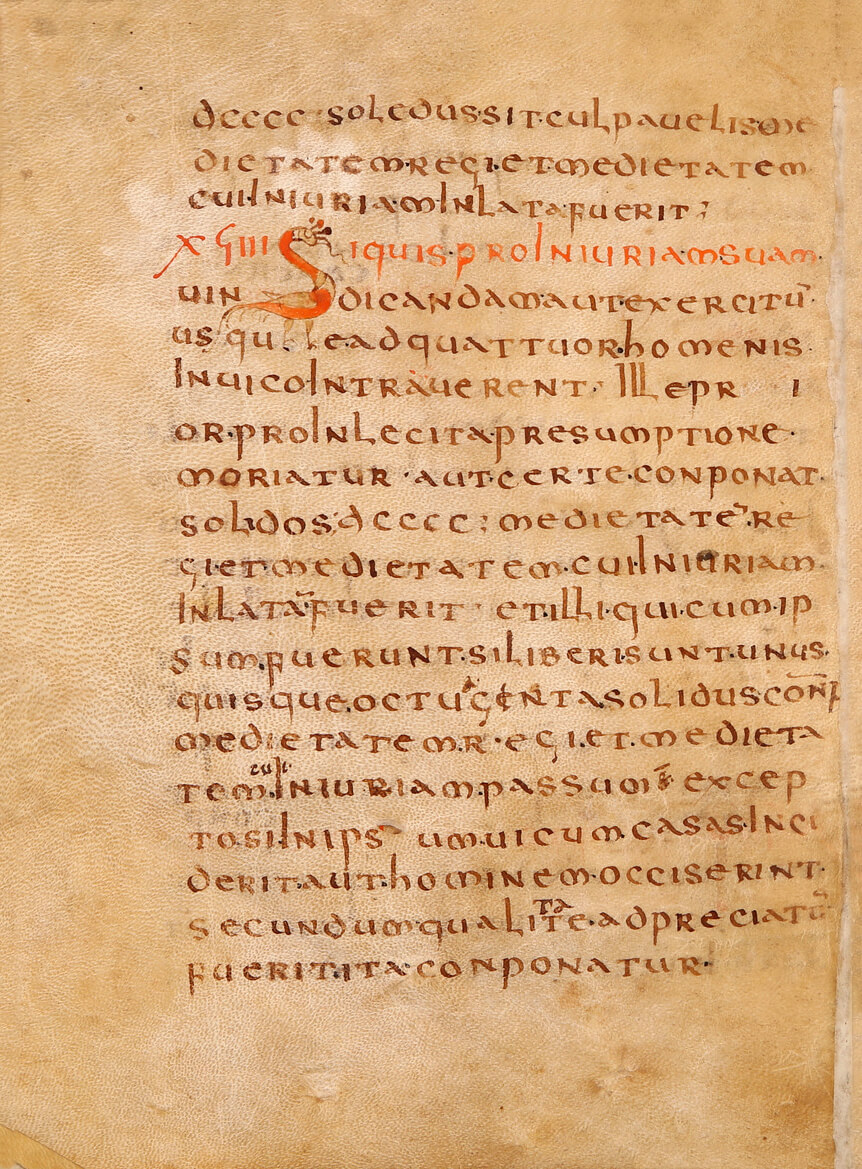 dcccc·soledussit·culpauelisme
dietatem·regi·et·medietatem
cuiiniuriam inlata fuerit;
XVIIII Siquis·pro iniuriam suam·
uindicandam aut exercitū·
usquʼead quattuor·homenis·
in uico intrauerent· ille pri
or·pro inlecita·presumptione·
moriatur·aut·certe·conponat·
solidos·dcccc; medietatē·re
gi·et·medietatem·cui iniuriam·
inlata·fuerit· et·illi·qui·cum·ip
sum·fuerunt·si·liberi sunt·unus·
quisque·octugenta·solidus conp
medietatem·r·egi·et·medieta
tem·cui iniuriam·passum ē excep
to·si·in ips um·uicum·casas·inci
derit·aut·hominem·occiserint·
secundum·qualitate·adpreciatū
fuerit·ita·conponatur·